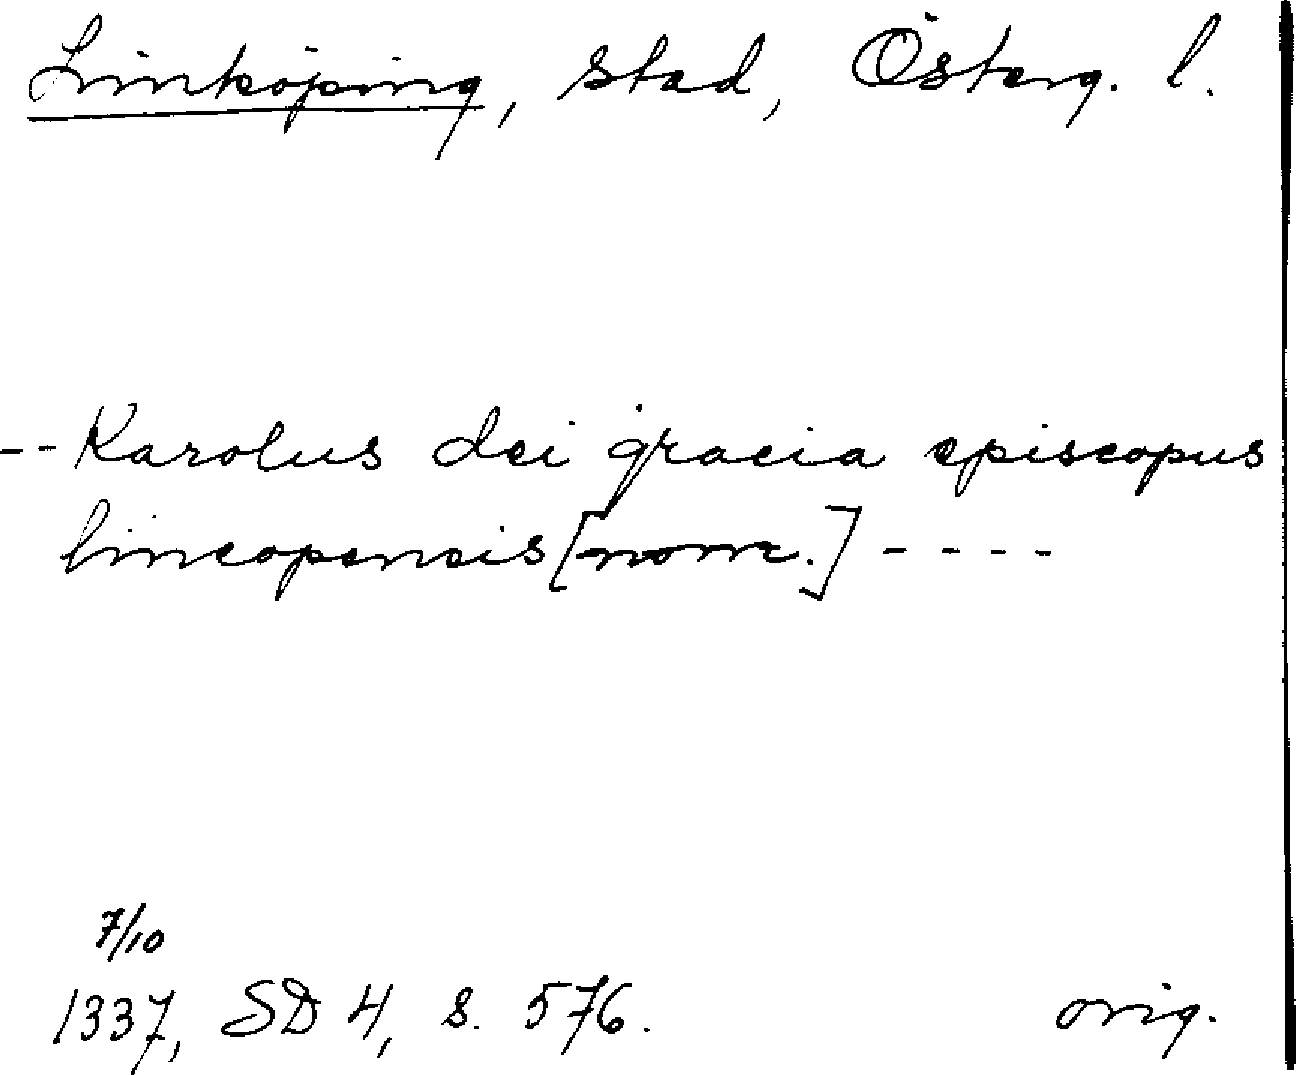 Linköping, stad, Österg. l.
-- Karolus dei gracia episcopus
lincopensis [nom.] ----
7/10
1337, SD 4, s. 576.
orig.